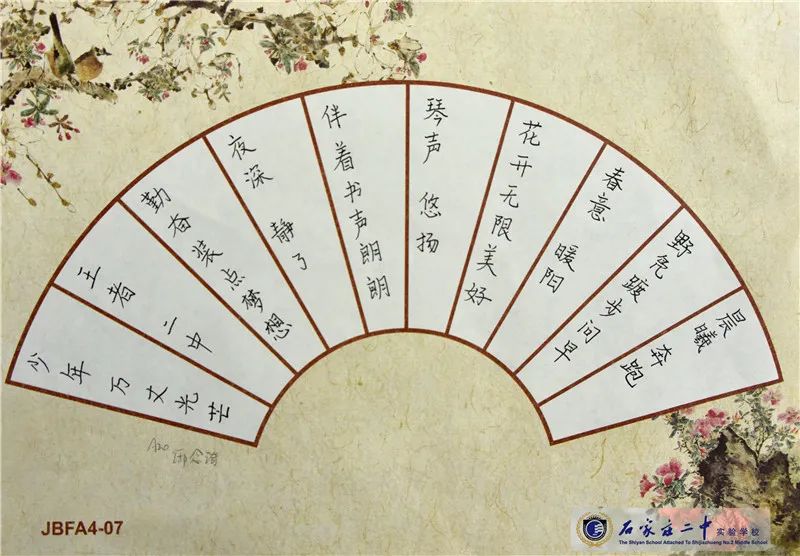 晨曦 奔跑
野踱步问早
春意 暖阳
花开无限美好
琴声 悠扬
伴着书声朗朗
夜深 静了
勤奋装点梦想
王者 二中
少年 万丈光芒
JBFA4-07
石家庄二中实验学校
The Shiyan School Attached To Shijiazhuang No.2 Middle School